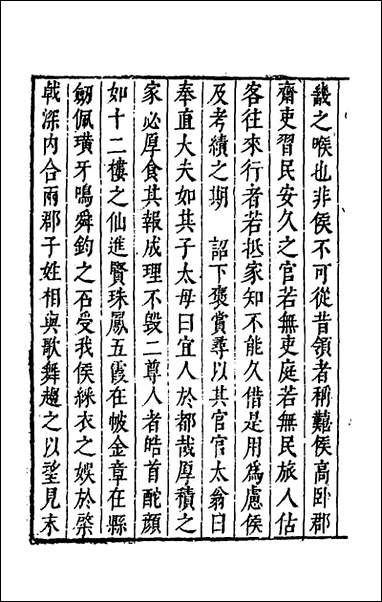 畿之喉也非侯不可從昔領者稱難侯高卧郡
齋吏習民安久之官若無吏庭若無民旅人估
客往來行者若抵家知不能久借是用為慮侯
及考績之期　詔下褒賞尋以其官官太翁曰
奉直大夫如其子太母曰宜人於都哉厚積之
家必厚食其報成理不毀二尊人者皓首酡顏
如十二樓之仙進賢珠鳳五霞在帔金章在縣
劒佩璜牙鳴舜鈞之石受我侯綵衣之娛於棨
戟深內合兩郡子姓相與歌舞趨之以望見末